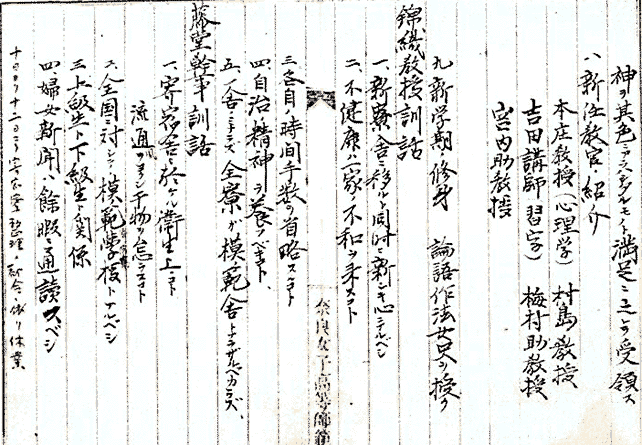 神が其色ニアラタルモトシ満足ニ之ヨリ受領ス
八、新任教官ノ紹介
本庄教授(心理学) 村島教授
吉田講師(習字) 梅村助教授
宮内助教授
九、新学期ノ修身 論語作法女史ヲ授ク
錦織教授訓話
一、新寮舎ニ移ルト同時ニ新シキ心ニナルベシ
二、不健康ハ一家ノ不和ヲ来スコト
三、各自ノ時間手数ヲ省略スルコト
四、自治ノ精神ヲ養フベキコト、
五、一舎ニトドマラズ全寮ガ模範舎トナラザルベカラズ、
藤堂幹事訓話
一、寄宿舎ニ於ケル衛生上ノコト
流通ヲヨクシ干物ヲ怠ラザルコト
二、全国ニ対シテ模範学校トナルベシ
三、上級生ト下級生ト関係
四、婦女新聞ハ餘暇ニ通讀スベシ
十日ヨリ十二日マデ寄宿舎整理ノ都合ニ依リ休業
奈良女子高等師範